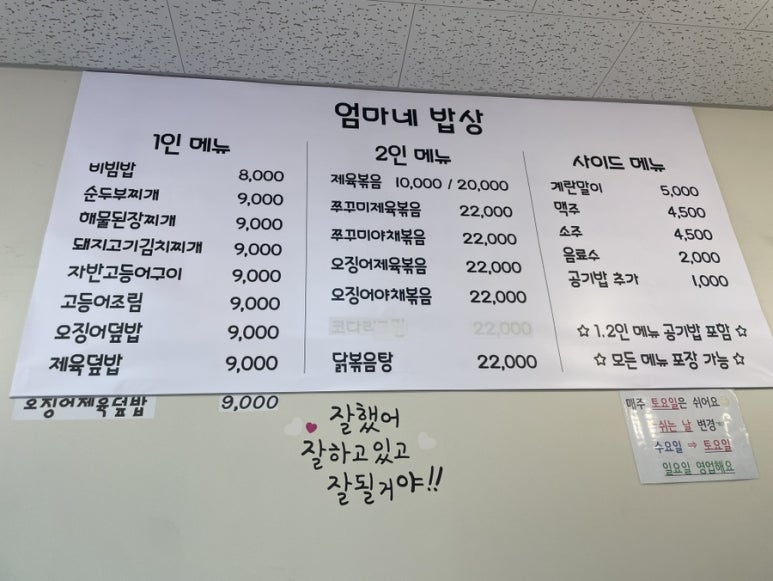 엄마네 밥상
1인 메뉴
비빔밥 8,000
순두부찌개 9,000
해물된장찌개 9,000
돼지고기김치찌개 9,000
자반고등어구이 9,000
고등어조림 9,000
오징어덮밥 9,000
제육덮밥 9,000
오징어제육덮밥 9,000
2인 메뉴
제육볶음 10,000 / 20,000
쭈꾸미제육볶음 22,000
쭈꾸미야채볶음 22,000
오징어제육볶음 22,000
오징어야채볶음 22,000
22,000
닭볶음탕 22,000
사이드 메뉴
계란말이 5,000
맥주 4,500
소주 4,500
음료수 2,000
공기밥 추가 1,000
☆ 1.2인 메뉴 공기밥 포함 ☆
☆ 모든 메뉴 포장 가능 ☆
잘했어
잘하고있고
잘될거야!!
매주 토요일은 쉬어요
쉬는 날 변경
수요일 ⇒ 토요일
일요일 영업해요